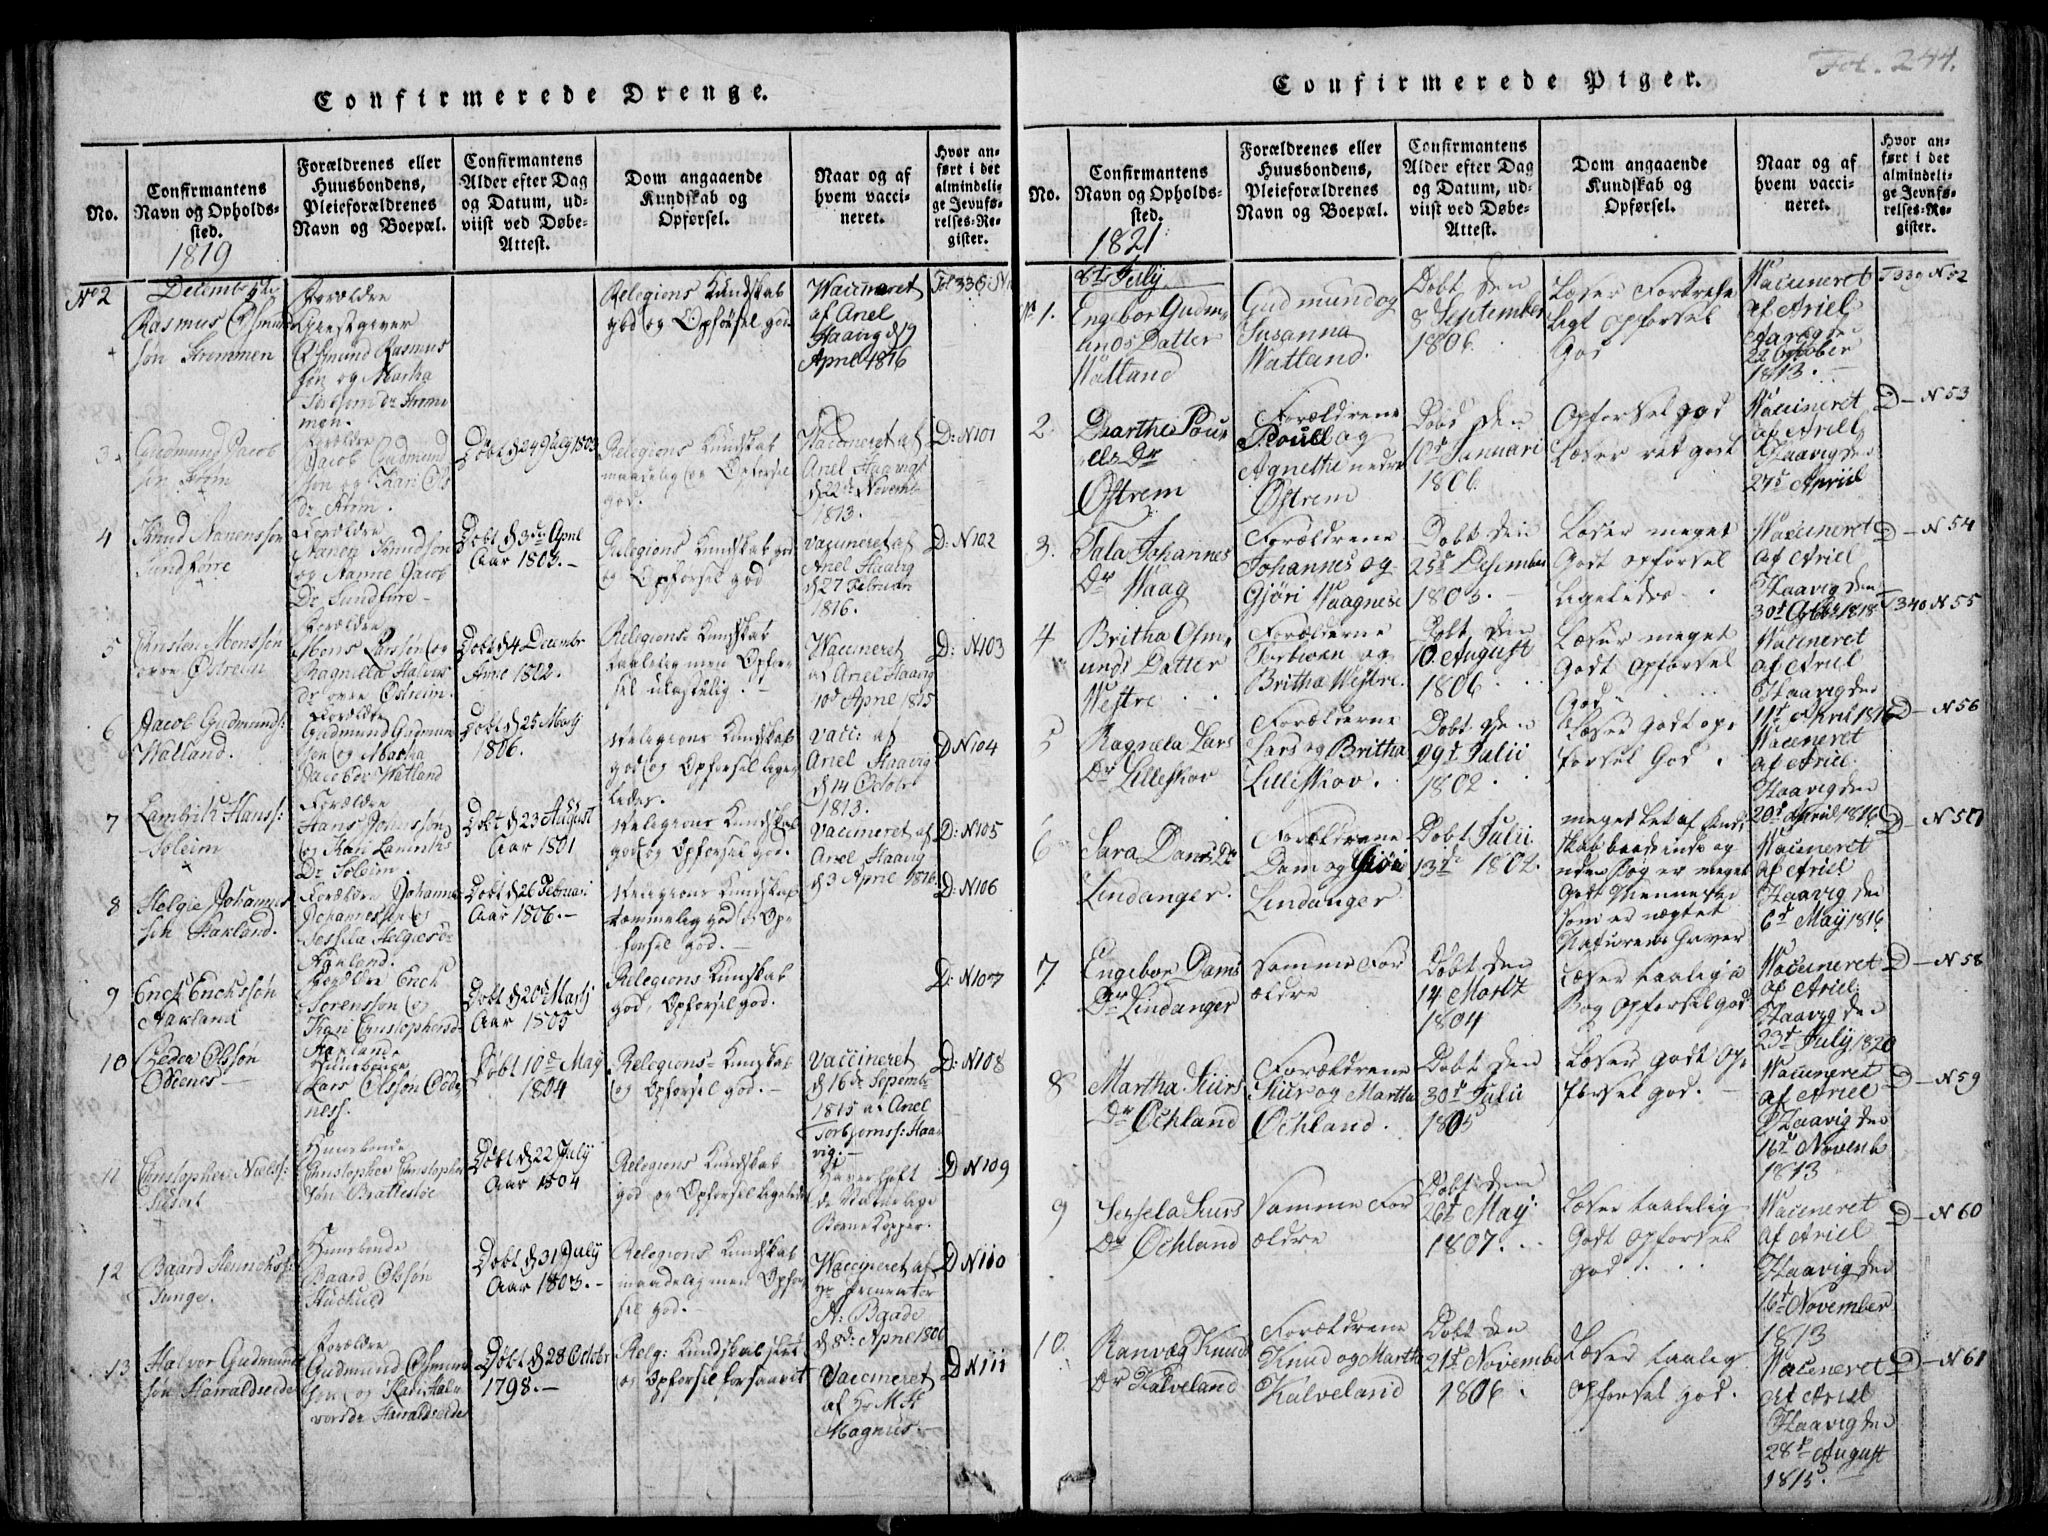 Confirmerede Drenge.
No.
Confirmantens
Navn og Opholds-
sted.
1819
Forældrenes eller
Huusbondens,
Pleieforældrenes
Navn og Boepæl.
Confirmantens
Alder efter Dag
og Datum, ud-
viist ved Døbe-
Attest.
Dom angaaende
Kundskab og
Opførsel.
Naar og af
hvem vacci-
neret.
Hvor an-
ført i det
almindeli-
ge Jevnfø-
relses-Re-
gister.
No 2
Rasmus
søn
Forældre
Giestgiver
Rasmus
søn og Martha
Religions Kundskab
god og Opførsel god.
Vaccineret
af Ariel
Haavig d 19
April 1816
Fol 336
3
Gudmund Jacob
søn
Forældre
Jacob Gudmund
søn og Kari
Døbt d 24 July 1803
Religions Kundskab
maadelig og Opførsel
god.
Vaccineret af
Ariel Haavig
d 22 de Novemb
1813.
D: N 101
4
Knud
Forældre
Knudsøn
og Anne Jacob
Dr
Døbt d 3 de April
Aar 1803.
Religions Kundskab god
og Opførsel god
vaccineret af
Ariel Haavig
d 27 Februari
1816.
D: N 102
5
Monssøn
Østrem
Forældre
Mons
Dr Østrem.
Døbt d 4 Decembr
1802.
Religions Kundskab
taalelig men Opfør-
sel
Vaccineret
af Ariel Haavig
10 d April 1815
D: N 103
6
Jacob Gudmunds:
Watland.
Forældre
Gudmund
søn og Martha
Jacobsdr Watland
Døbt d 25 Martj
1806.
Religions Kundskab
god og Opførsel lige
ledes.
vacc: af
Ariel Haavig
d 14 October
1813.
D N 104
7
Lambrik Hans:
Soleim
Forældre
Hans
og
Dr Soleim.
Døbt d 23 August
Aar 1801
Religions Kundskab
god og Opførsel god.
vaccineret af
Ariel Haavig
d 3 April 1816
D: N 105
8
Helgie Johannes
søn
Forældre Johannes
Johannessøn og
Døbt d 26 Februari
Aar 1806.
Religions Kundskab
temmelig god og Op-
førsel god.
D: N 106
9
Erick Ericksøn
Forældre Erick
Sørensøn og
Kari Christophersd
Døbt d 20 d Martj
Aar 1805
Religions Kundskab
god, Opførsel god.
D: N 107
10
Peder Olsøn
Odenes
Huusbonde
Lars Olssøn Ode
ness.
Døbt 10 de May
1804
Religions Kundskab
og Opførsel god.
vaccineret
d 16 de Septemb
1815 af Ariel
Torbjørns: Haa
vig.
D: N 108
11
Christopher Niels:
Huusbonde
Christopher Christopher
søn Bratteslie
Døbt d 22 July
Aar 1804
Religions Kundskab
god og Opførsel ligeledes
Haver haft
de Naturlige
Børne Kopper.
D N 109
12
Baard Henricks:
Tunge.
Huusbonde
Baard Olssøn
Døbt d 31 July
Aar 1803.
Religions Kundskab
maadelig men Opfør
sel god.
Vaccineret af
Hr
A. Baade
d 8 de April
D N 110
13
Halvor Gudmund
søn
Forældre
Gudmund
søn og Kari Hal
vorsdr
Døbt d 28 October
1798.
Relig: Kundskab slet
og Opførsel forsaavit
Vaccineret
af
Magnus
D N 111
Confirmerede Piger.
Fol. 244.
No.
Confirmantens
Navn og Opholds-
sted.
1821
8 de July
Forældrenes eller
Huusbondens,
Pleieforældrenes
Navn og Boepæl.
Confirmantens
Alder efter Dag
og Datum, ud-
viist ved Døbe-
Attest.
Dom angaaende
Kundskab og
Opførsel.
Naar og af
hvem vacci-
neret.
Hvor an-
ført i det
almindeli-
ge Jevnfø-
relses-Re-
gister.
No 1.
Engebor Gudm-
unds Datter
Watland
Gudmund og
Susanna
Watland.
Døbt den
8 September
1806.
Læser Fortrefe
ligt Opførsel
God
Vaccineret
af Ariel
Haavig den
22 October
1813.
F 339 N 52
2.
Barthe Pou-
els Dr
Østrem
Forældrene
Pouel og
Agnethe nedre
Østrem
Døbt den
10 d Januari
1806
Opførsel god
Læser ret godt
Vaccineret
af Ariel
Haavig den
27 d April
D - N 53
3.
Tala Johannes
Dr Waag
Forældrene
Johannes og
Gjøri Waagnese
Døbt den
25 d Desember
1803.
Læser meget
Godt opførsel
Ligeledes
Vaccineret
af Ariel
Haavig den
30 d 1818
D - N 54
4
Britha Osm-
unds Datter
Westre
Forælderne
og
Britha Westre.
Døbt den
10. August
1806
Læser meget
Godt opførsel
God
Vaccineret
af Ariel
Haavig den
11 d April 1816
F 340 N 55
5
Ragnela Lars
Dr Lilleskov
Forælderne
Lars og Britha
Lilleskov.
Døbt den
29 d Julii
1802.
Læser Godt op-
førsel God.
Vaccineret
af Ariel
Haavig den
20 d April 1816
D - N 56
6
Sara Dams Dr
Lindanger.
Forældrene
Dam og Siri
Lindanger
Døbt Julii
13 de 1802.
meget Let af Kund
skab baade inde og
uden Bog er meget
Godt Menneske
som er nægtet
Naturens Gaver
Vaccineret
af Ariel
Haavig den
6 d May 1816
D - N 57
7.
Engebor Dams
Dr Lindanger
Samme For
ældre
Døbt den
14 Martz
1804
Læser taalig i
Bog Opførsel god
Vaccineret
af Ariel
Haavig den
23 d July 1820
D - N 58
8
Martha Siurs
Dr Øchland
Forældrene
Siur og Martha
Øchland.
Døbt den
30 d Julii
1805
Læser godt Op-
førsel god.
Vaccineret
af Ariel
Haavig den
16 d Novemb
1813
D - N 59
9
Sessela Siurs
Dr Øchland
Samme For
ældre
Døbt den
26 d May
1807.
Læser taalelig
godt opførsel
god
Vaccineret
af Ariel
Haavig den
16 d November
1813
D - N 60
10.
Ranvæg Knud
Dr Kalveland
Forældrene
Knud og Martha
Kalveland
Døbt den
21 d Novemb
1806.
Læser taalig
opførsel god.
Vaccineret
af Ariel
Haavig den
28 d August
1815.
D - N 61